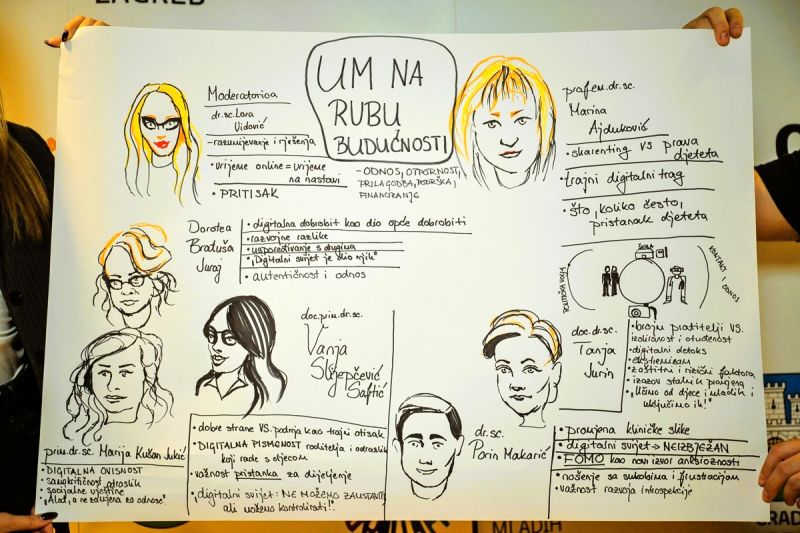 ZAGREB
UM NA
RUBU
BUDUĆNOSTI
- ODNOS, OTPORNOST,
PRILAGODBA, PODRŠKA,
FINANCIRANJE
Moderatorica
dr.sc. Lora
Vidović
- razumijevanje i rješenja
• vrijeme online = vrijeme
na nastavi
• PRITISAK
prof.em.dr.sc.
Marina
Ajduković
• sharenting vs prava
djeteta
• trajni digitalni trag
• što, koliko često,
pristanak djeteta
ŠKOLA
KONTAKT I ODNOS
Dorotea
Braduša
Juraj
• digitalna dobrobit kao dio opće dobrobiti
• razvojne razlike
• uspoređivanje s drugima
• "Digitalni svijet je dio njih"
• autentičnost i odnos
doc.prim.dr.sc.
Vanja
Slijepčević
Saftić
• dobre strane VS. padnja kao trajni otisak
• DIGITALNA PISMENOST roditelja i odraslih
koji rade s djecom
• važnost pristanka za dijeljenje
• digitalni svijet: NE MOŽEMO ZAUSTAVITI
ali možemo kontrolirati!"
prim.dr.sc. Marija Kušan Jukić
• DIGITALNA OVISNOST
• samokritičnost odraslih
• socijalne vještine
• "Alat, a ne zamjena za odnose"
doc.dr.sc.
Tanja
Jurin
• brojni pratitelji VS.
izoliranost i otuđenost
• digitalni detoks
• ekstremizam
• zaštitni i rizični faktori
• izazov stalnih promjena
• "Učimo od djece i mladih i
uključimo ih!"
dr.sc.
Porin Makarić
• promjena kliničke slike
• digitalni svijet → NEIZBJEŽAN
• FOMO kao novi izvor anksioznosti
• nošenje sa sukobima i frustracijom
• važnost razvoja introspekcije
MLADIH
GRAD